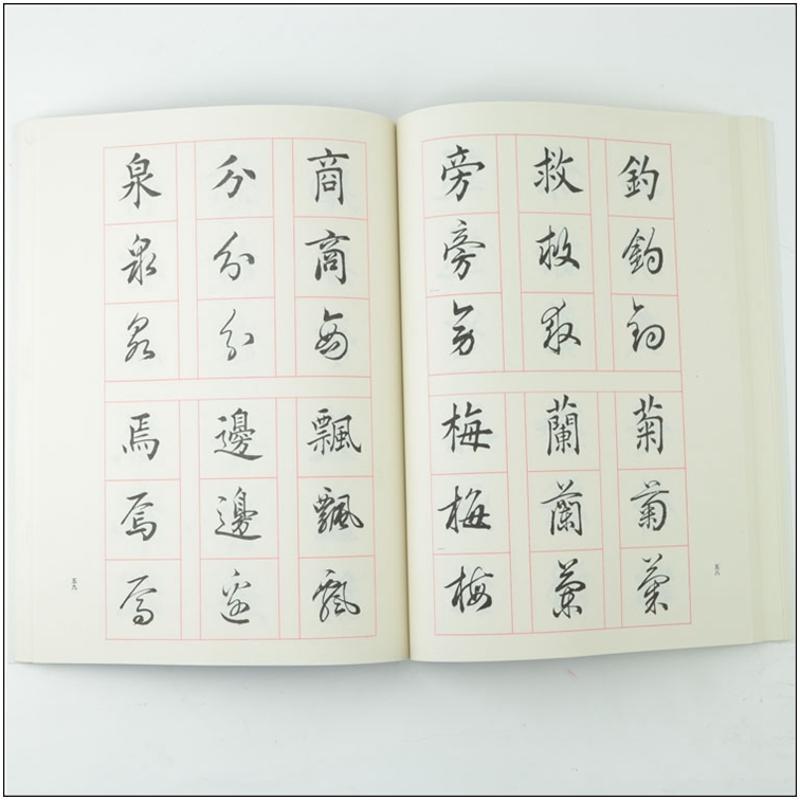 釣釣釣
救救救
旁旁旁
菊菊菊
蘭蘭蘭
梅梅梅
五八
商商商
分分分
泉泉泉
飄飄飄
邊邊邊
焉焉焉
五九